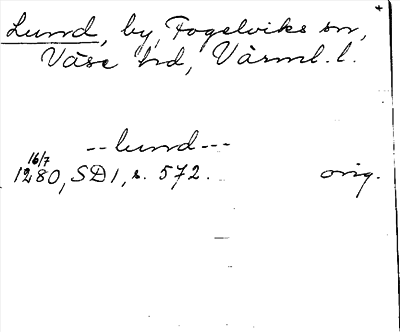 +
Lund, by, Fogelviks sn,
Väse hd, Värml. l.
--lund---
16/7
1280, SD 1, s. 572. orig.